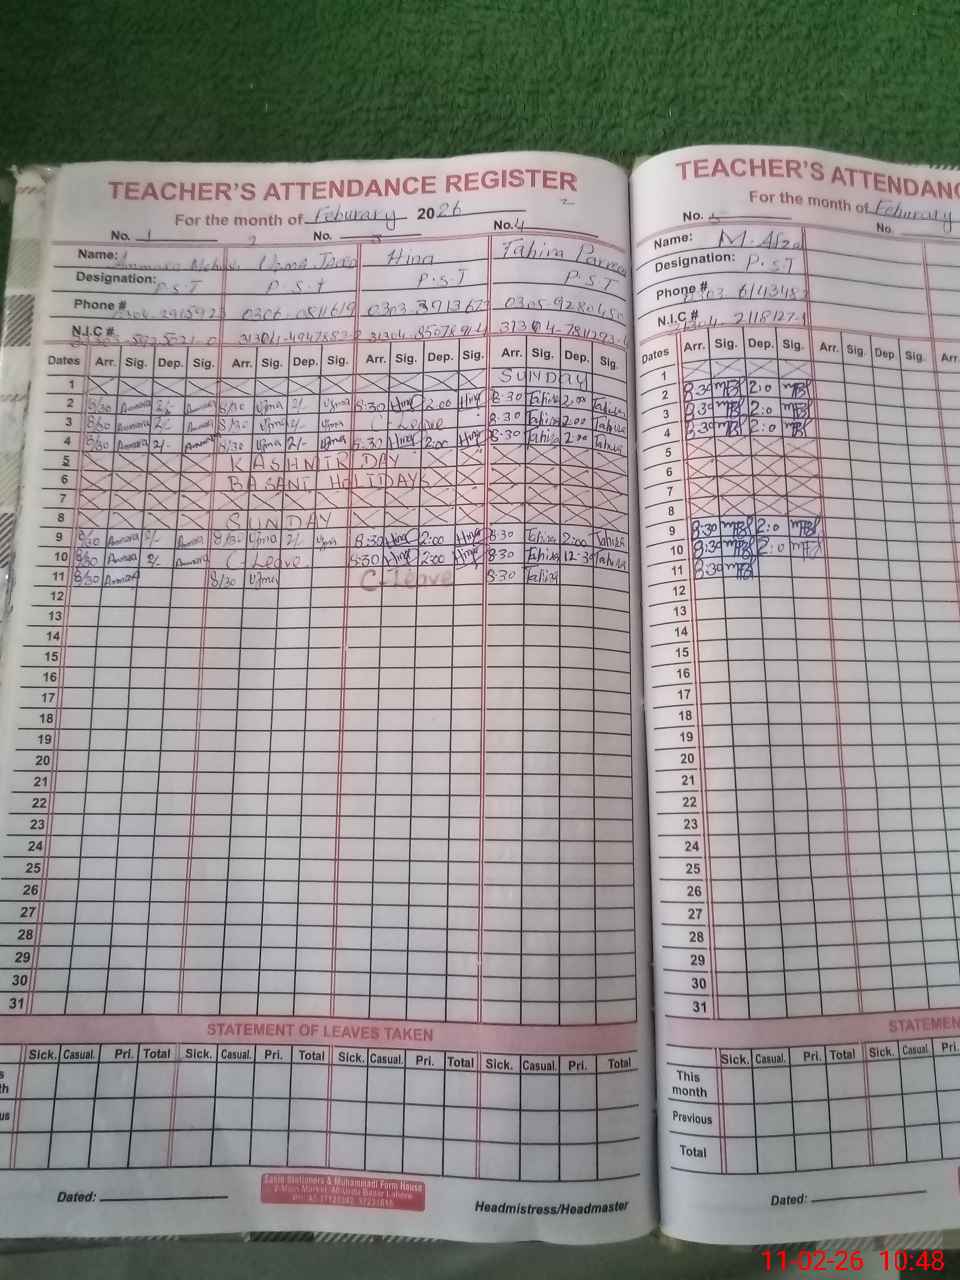 TEACHER'S ATTENDANCE REGISTER
For the month of Feburary 2026
No. 1 2 No. 3 No. 4
Name: Hina Tahira
Designation: P.S.T P.S.T P.S.T P.S.T
Phone #
N.I.C #
Dates Arr. Sig. Dep. Sig. Arr. Sig. Dep. Sig. Arr. Sig. Dep. Sig. Arr. Sig. Dep. Sig.
1 SUNDAY
2 8/30 2/- 8/30 Uzma 2/- Uzma 8:30 Hina 2:00 Hina 8:30 Tahira 2:00 Tahira
3 8/30 2/- 8/30 Uzma 2/- Uzma C-Leave 8:30 Tahira 2:00 Tahira
4 8/30 2/- 8/30 Uzma 2/- Uzma 8:30 Hina 2:00 Hina 8:30 Tahira 2:00 Tahira
5 KASHMIR DAY
6 BASANT HOLIDAYS
7
8 SUNDAY
9 8/30 2/- 8/30 Uzma 2/- Uzma 8:30 Hina 2:00 Hina 8:30 Tahira 2:00 Tahira
10 8/30 2/- C-Leave 8:30 Hina 2:00 Hina 8:30 Tahira 12:30 Tahira
11 8/30 8/30 Uzma C-Leave 8:30 Tahira
12
13
14
15
16
17
18
19
20
21
22
23
24
25
26
27
28
29
30
31
STATEMENT OF LEAVES TAKEN
Sick. Casual. Pri. Total Sick. Casual. Pri. Total Sick. Casual. Pri. Total Sick. Casual. Pri. Total
Dated:
Headmistress/Headmaster
TEACHER'S ATTENDANC
For the month of Feburary
No. 5 No.
Name: M. Afzal
Designation: P.S.T
Phone #
N.I.C #
Dates Arr. Sig. Dep. Sig. Arr. Sig. Dep. Sig. Arr.
1
2 8:30 2:0
3 8:30 2:0
4 8:30 2:0
5
6
7
8
9 8:30 2:0
10 8:30 2:0
11 8:30
12
13
14
15
16
17
18
19
20
21
22
23
24
25
26
27
28
29
30
31
STATEMEN
Sick. Casual. Pri. Total Sick. Casual Pri.
This month
Previous
Total
Dated:
11-02-26 10:48